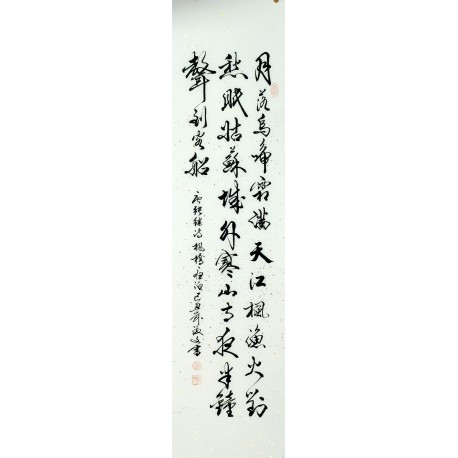 月落烏啼霜滿天江楓漁火對
愁眠姑蘇城外寒山寺夜半鐘
聲到客船
唐張繼詩楓橋夜泊己丑年